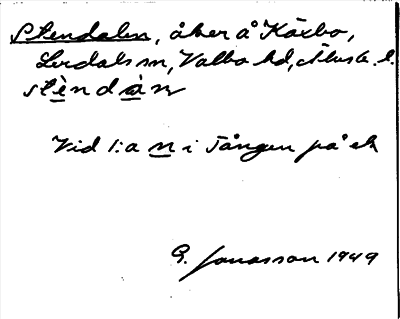 Stendalen, åker å Kärbo,
Lerdals sn, Valbo hd, Älvsb. l.
stèndàn
Vid l:a n i Tången på ek
G. Jonasson 1949